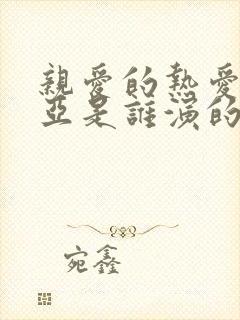 親愛的熱愛
亞是誰演的
宛鑫